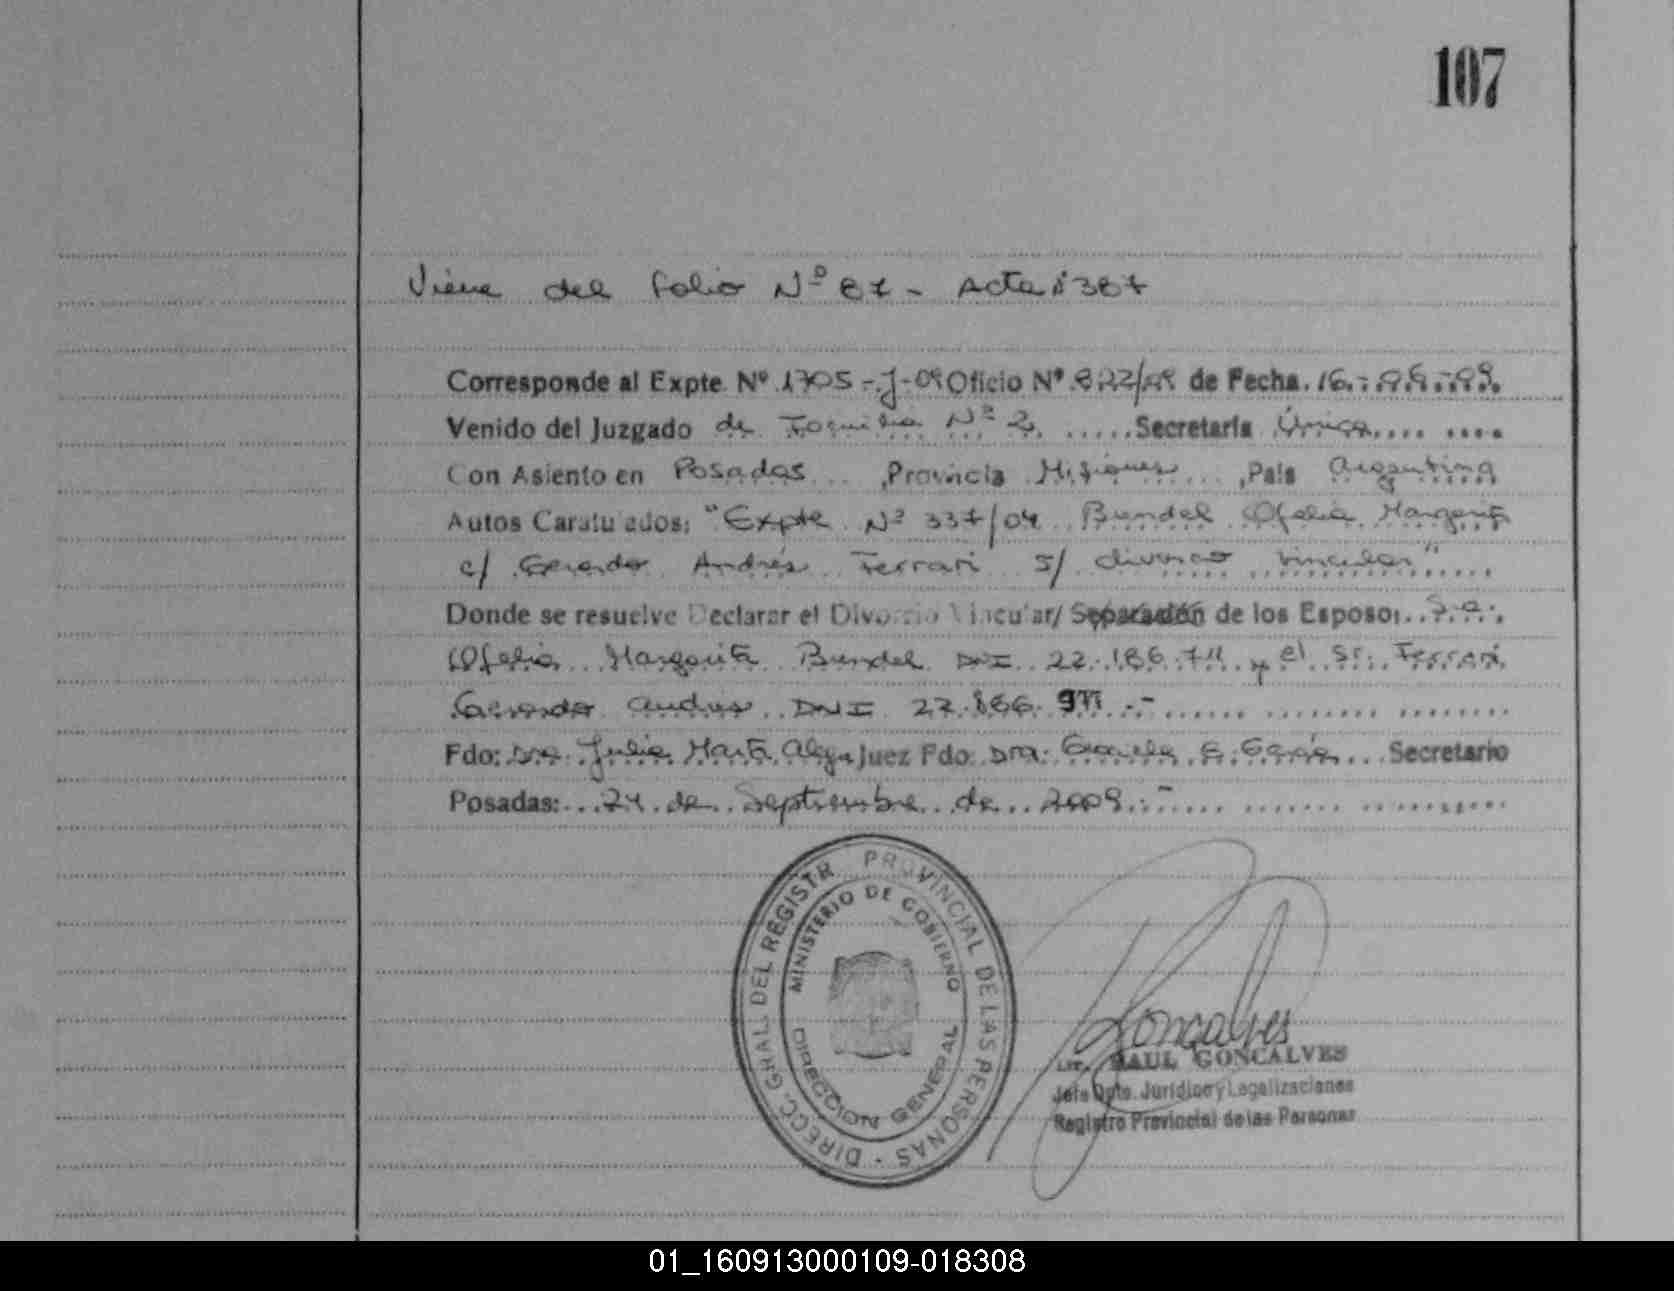 107
Viene del folio Nº 87 - Acta 387
Corresponde al Expte. Nº 1705 - J - 09 Oficio Nº 822/09 de Fecha. 16 - 09 - 09.
Venido del Juzgado de Familia Nº 2 Secretaría Única
Con Asiento en Posadas, Provincia Misiones, País Argentina
Autos Caratulados: "Expte Nº 337/04 Bundel Ofelia Margarita
c/ Gerardo Andrés Ferrari S/ divorcio vincular"
Donde se resuelve Declarar el Divorcio Vincular/ Separación de los Esposos Sra.
Ofelia Margarita Bundel DNI 22.186. y el Sr. Ferrari
Gerardo Andres DNI 22.
Fdo: Dra. Julia Marta Juez Fdo: Dra. Graciela Secretario
Posadas: 24 de Septiembre de 2009.-
DIRECC. GRAL. DEL REGISTR. PROVINCIAL DE LAS PERSONAS
MINISTERIO DE GOBIERNO
DIRECCION GENERAL
Goncalves
Lic. RAUL GONCALVES
Jefe Dpto. Jurídico y Legalizaciones
Registro Provincial de las Personas
01_160913000109-018308